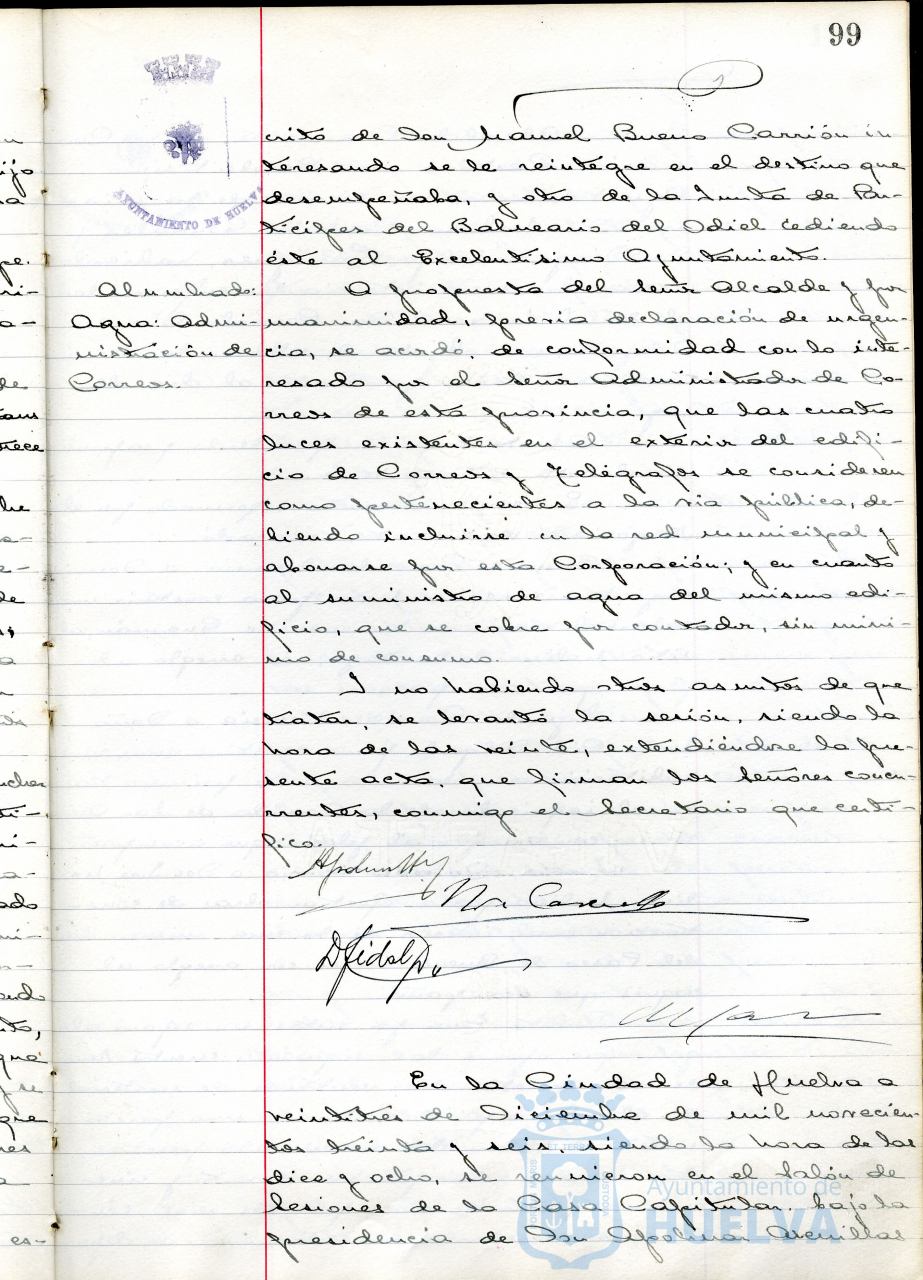 99
AYUNTAMIENTO DE HUELVA
crito de Don Manuel Bueno Carrión in-
teresando se le reintegre en el destino que
desempeñaba, y otro de la Junta de Par-
tícipes del Balneario del Odiel cediendo
éste al Excelentísimo Ayuntamiento.
Alumbrado:
Agua: Admi-
nistración de
Correos.
A propuesta del Señor Alcalde y por
unanimidad, previa declaración de urgen-
cia, se acordó, de conformidad con lo inte-
resado por el Señor Administrador de Co-
rreos de esta provincia, que las cuatro
luces existentes en el exterior del edifi-
cio de Correos y Telégrafos se consideren
como pertenecientes a la vía pública, de-
biendo incluirse en la red municipal y
abonarse por esta Corporación; y en cuanto
al suministro de agua del mismo edi-
ficio, que se cobre por contador, sin míni-
mo de consumo.
Y no habiendo otros asuntos de que
tratar, se levantó la sesión, siendo la
hora de las veinte, extendiéndose la pre-
sente acta, que firman los señores concu-
rrentes, conmigo el Secretario que certi-
fico.
En la Ciudad de Huelva a
veintitres de Diciembre de mil novecien-
tos treinta y seis, siendo la hora de las
diez y ocho, se reunieron en el Salón de
Sesiones de la Casa Capitular, bajo la
presidencia de Don Apolinar Arenillas
Ayuntamiento de
HUELVA